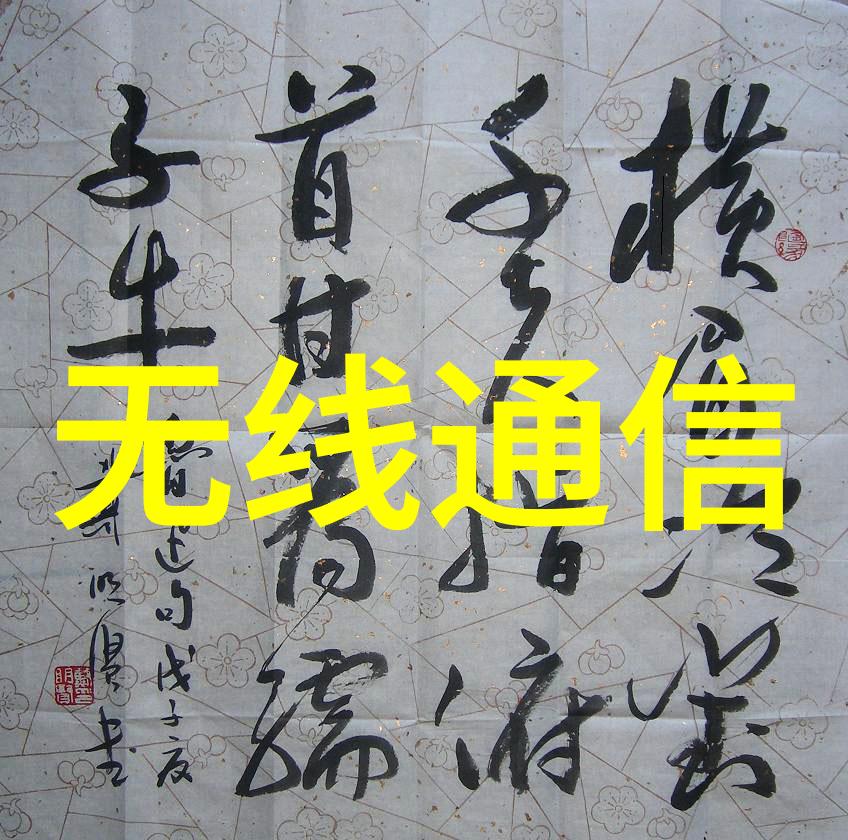 无线通信
横眉冷對
千夫指俯
首甘為孺
子牛
魯迅句戊子夏